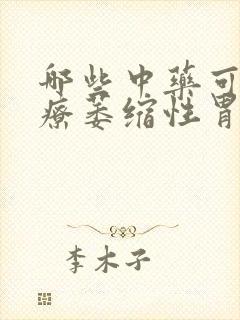 那些中藥可
療萎縮性胃
李木子